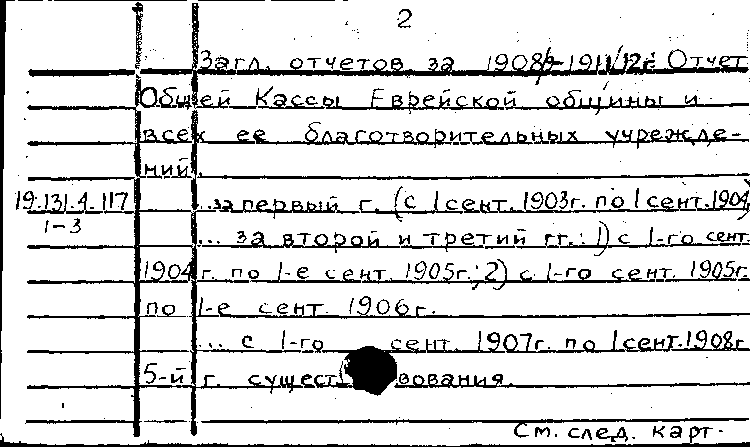 2
Загл. отчетов за 1908/9-1911/12г: Отчет
Общей Кассы Еврейской общины и
всех ее благотворительных учрежде-
ний.
19.131.4.117 ...за первый г. (с 1 сент. 1903г. по 1 сент. 1904)
1-3
... за второй и третий гг.: 1) с 1-го сент.
1904г. по 1-е сент. 1905г.; 2) с 1-го сент. 1905г.
по 1-е сент. 1906г.
... с 1-го сент. 1907г. по 1 сент. 1908г
5-й г. существования.
См. след. карт.